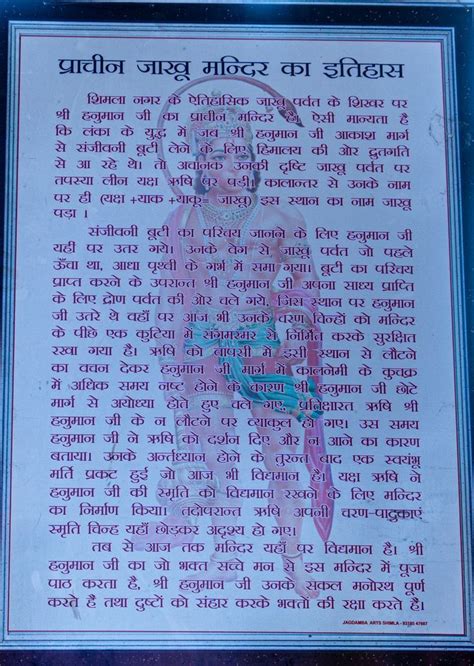 प्राचीन जाखू मन्दिर का इतिहास
शिमला नगर के ऐतिहासिक जाखू पर्वत के शिखर पर
श्री हनुमान जी का प्राचीन मन्दिर है। ऐसी मान्यता है
कि लंका के युद्ध में जब श्री हनुमान जी आकाश मार्ग
से संजीवनी बूटी लेने के लिए हिमालय की ओर द्रुतगति
से आ रहे थे। तो अचानक उनकी दृष्टि जाखू पर्वत पर
तपस्या लीन यक्ष ऋषि पर पड़ी। कालान्तर से उनके नाम
पर ही (यक्ष +याक +याकू= जाखू) इस स्थान का नाम जाखू
पड़ा ।
संजीवनी बूटी का परिचय जानने के लिए हनुमान जी
यही पर उतर गये। उनके वेग से जाखू पर्वत जो पहले
ऊँचा था, आधा पृथ्वी के गर्भ में समा गया। बूटी का परिचय
प्राप्त करने के उपरान्त श्री हनुमान जी अपना साध्य प्राप्ति
के लिए द्रोण पर्वत की ओर चले गये, जिस स्थान पर हनुमान
जी उतरे थे वहाँ पर आज भी उनके चरण चिन्हों को मन्दिर
के पीछे एक कुटिया में संगमरमर से निर्मित करके सुरक्षित
रखा गया है। ऋषि को वापसी में इसी स्थान से लौटने
का वचन देकर हनुमान जी मार्ग में कालनेमी के कुचक्र
में अधिक समय नष्ट होने के कारण श्री हनुमान जी छोटे
मार्ग से अयोध्या होते हुए चले गए, प्रतिक्षारत ऋषि श्री
हनुमान जी के न लौटने पर व्याकुल हो गए। उस समय
हनुमान जी ने ऋषि को दर्शन दिए और न आने का कारण
बताया। उनके अर्न्तध्यान होने के तुरन्त बाद एक स्वयंभू
मर्ति प्रकट हुई जो आज भी विद्यमान है। यक्ष ऋषि ने
हनुमान जी की स्मृति को विद्यमान रखने के लिए मन्दिर
का निर्माण किया। तदोपरान्त ऋषि अपनी चरण-पादुकाएं
स्मृति चिन्ह यहाँ छोड़कर अदृश्य हो गए।
तब से आज तक मन्दिर यहाँ पर विद्यमान है। श्री
हनुमान जी का जो भक्त सच्चे मन से इस मन्दिर में पूजा
पाठ करता है, श्री हनुमान जी उनके सकल मनोरथ पूर्ण
करते है तथा दुष्टों को संहार करके भक्तों की रक्षा करते है।
JAGDAMBA ARTS SHIMLA -